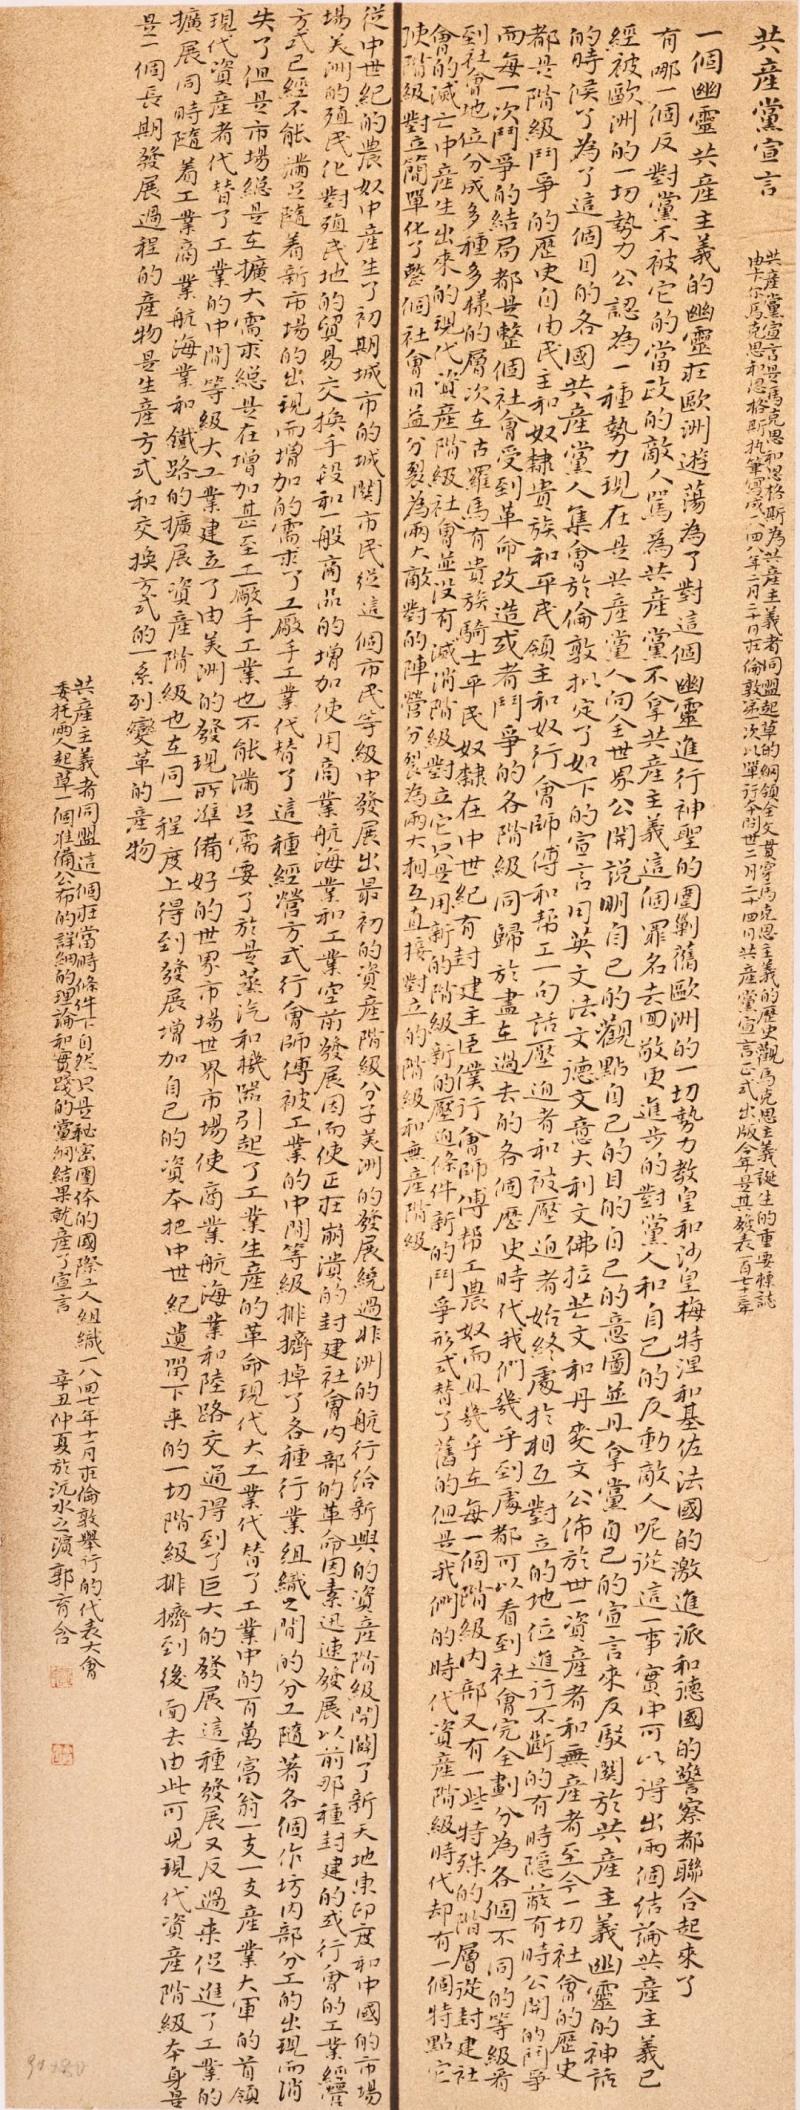 共產黨宣言
共產黨宣言是馬克思和恩格斯為共產主義者同盟起草的綱領全文貫穿馬克思主義的歷史觀馬克思主義誕生的重要標誌
由卡尔馬克思和恩格斯执筆寫成一八四八年二月二十一日在倫敦第一次以單行本問世二月二十四日共產黨宣言正式出版今年是其發表一百七十三年
一個幽靈共產主義的幽靈在歐洲遊蕩為了對這個幽靈進行神聖的圍剿舊歐洲的一切勢力教皇和沙皇梅特涅和基佐法國的激進派和德國的警察都聯合起來了
有哪一個反對黨不被它的當政的敵人駡為共產黨不拿共產主義這個罪名去回敬更進步的對黨人和自己的反動敵人呢從這一事實中可以得出兩個結論共產主義已
經被歐洲的一切勢力公認為一種勢力現在是共產黨人向全世界公開說明自己的觀點自己的目的自己的意圖並且拿黨自己的宣言來反駁關於共產主義幽靈的神話
的時候了為了這個目的各國共產黨人集會於倫敦拟定了如下的宣言用英文法文德文意大利文佛拉芒文和丹麥文公佈於世一資產者和無產者至今一切社會的歷史
都是階級鬥爭的歷史自由民主和奴隸貴族和平民領主和奴行會師傅和帮工一句話壓迫者和被壓迫者始終處於相互對立的地位進行不斷的有時隱蔽有時公開的鬥爭
而每一次鬥爭的結局都是整個社會受到革命改造或者鬥爭的各階級同歸於盡在過去的各個歷史時代我們幾乎到處都可以看到社會完全劃分為各個不同的等級看
到社會地位分成多種多樣的層次在古羅馬有貴族騎士平民奴隸在中世紀有封建主臣僕行會師傅帮工農奴而且幾乎在每一個階級內部又有一些特殊的階層從封建社
會的滅亡中產生出來的現代資產階級社會並没有滅消階級對立它只是用新的階級新的壓迫條件新的鬥爭形式替了舊的但是我們的時代資產階級時代却有一個特點它
使階級對立簡單化了整個社會日益分裂為兩大敵對的陣營分裂為兩大相互直接對立的階級和無產階級
從中世紀的農奴中產生了初期城市的城関市民從這個市民等級中發展出最初的資產階級分子美洲的發展繞過非洲的航行給新興的資產階級開闢了新天地東印度和中國的市場
場美洲的殖民化對殖民地的貿易交換手段和一般商品的增加使用商業航海業和工業空前發展因而使正在崩潰的封建社會內部的革命因素迅速發展以前那種封建的或行會的工業經營
方式已經不能滿足隨着新市場的出現而增加的需求了工廠手工業代替了這種經營方式行會師傅被工業的中間等級排擠掉了各種行業組織之間的分工隨著各個作坊內部分工的出現而消
失了但是市場總是在擴大需求總是在增加甚至工廠手工業也不能滿足需要了於是蒸汽和機器引起了工業生產的革命現代大工業代替了工業中的百萬富翁一支一支產業大軍的首領
現代資產者代替了工業的中間等級大工業建立了由美洲的發現所准備好的世界市場世界市場使商業航海業和陸路交通得到了巨大的發展這種發展又反過來促進了工業的
擴展同時隨着工業商業航海業和鐵路的擴展資產階級也在同一程度上得到發展增加自己的資本把中世紀遺留下來的一切階級排擠到後面去由此可見現代資產階級本身是
是一個長期發展過程的產物是生產方式和交換方式的一系列變革的產物
共產主義者同盟這個在當時條件下自然只是秘密團体的國際工人組織一八四七年十一月在倫敦舉行的代表大會
委托兩人起草一個准備公布的詳細的理論和實踐的黨綱結果就產了宣言 辛丑仲夏於沅水之濱郭育合